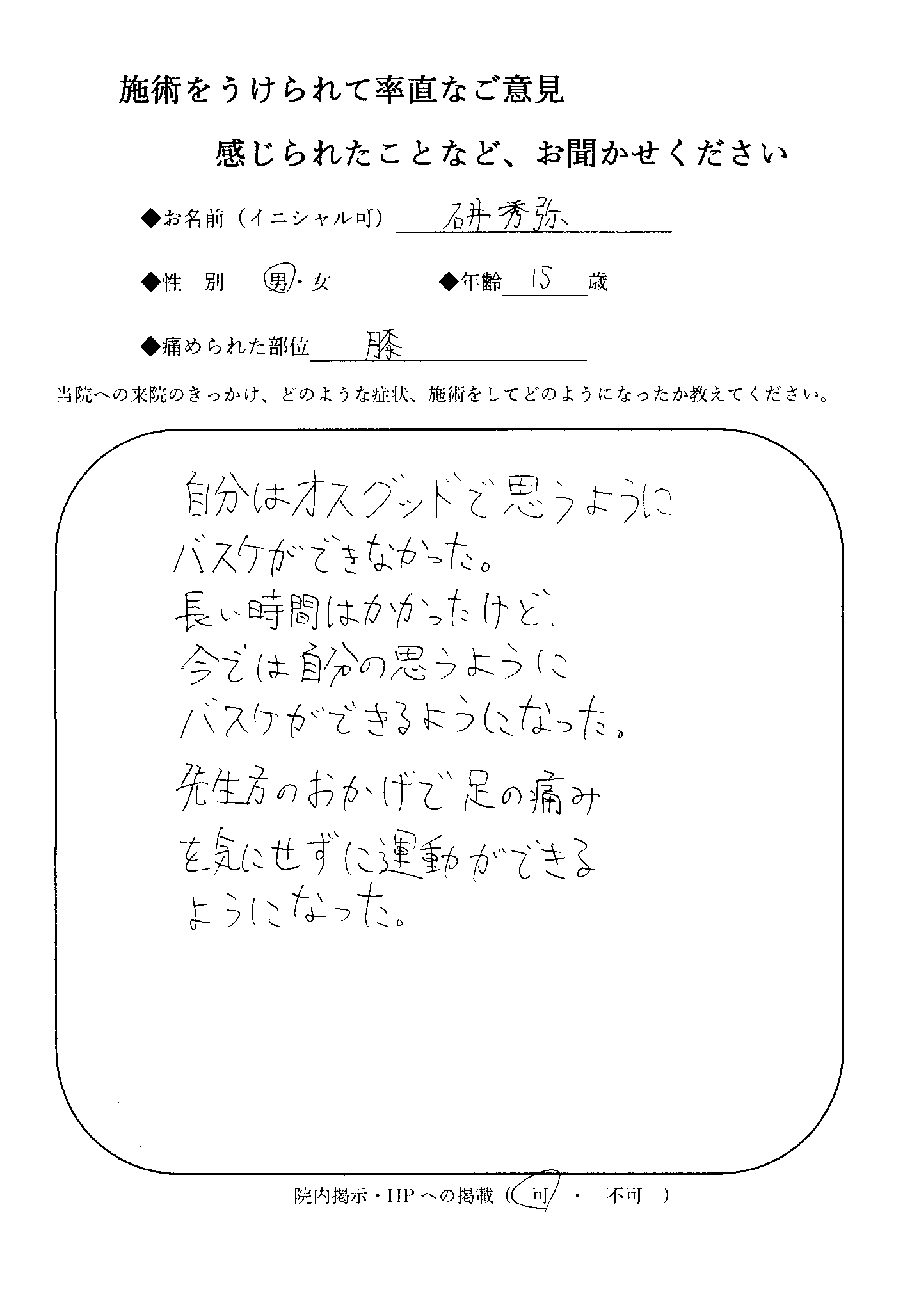 施術をうけられて率直なご意見
感じられたことなど、お聞かせください
◆お名前（イニシャル可） 研秀弥
◆性 別 男・女 ◆年齢 15 歳
◆痛められた部位 膝
当院への来院のきっかけ、どのような症状、施術をしてどのようになったか教えてください。
自分はオスグッドで思うように
バスケができなかった。
長い時間はかかったけど、
今では自分の思うように
バスケができるようになった。
先生方のおかげで足の痛み
を気にせずに運動ができる
ようになった。
院内掲示・HPへの掲載（ 可 ・ 不可 ）